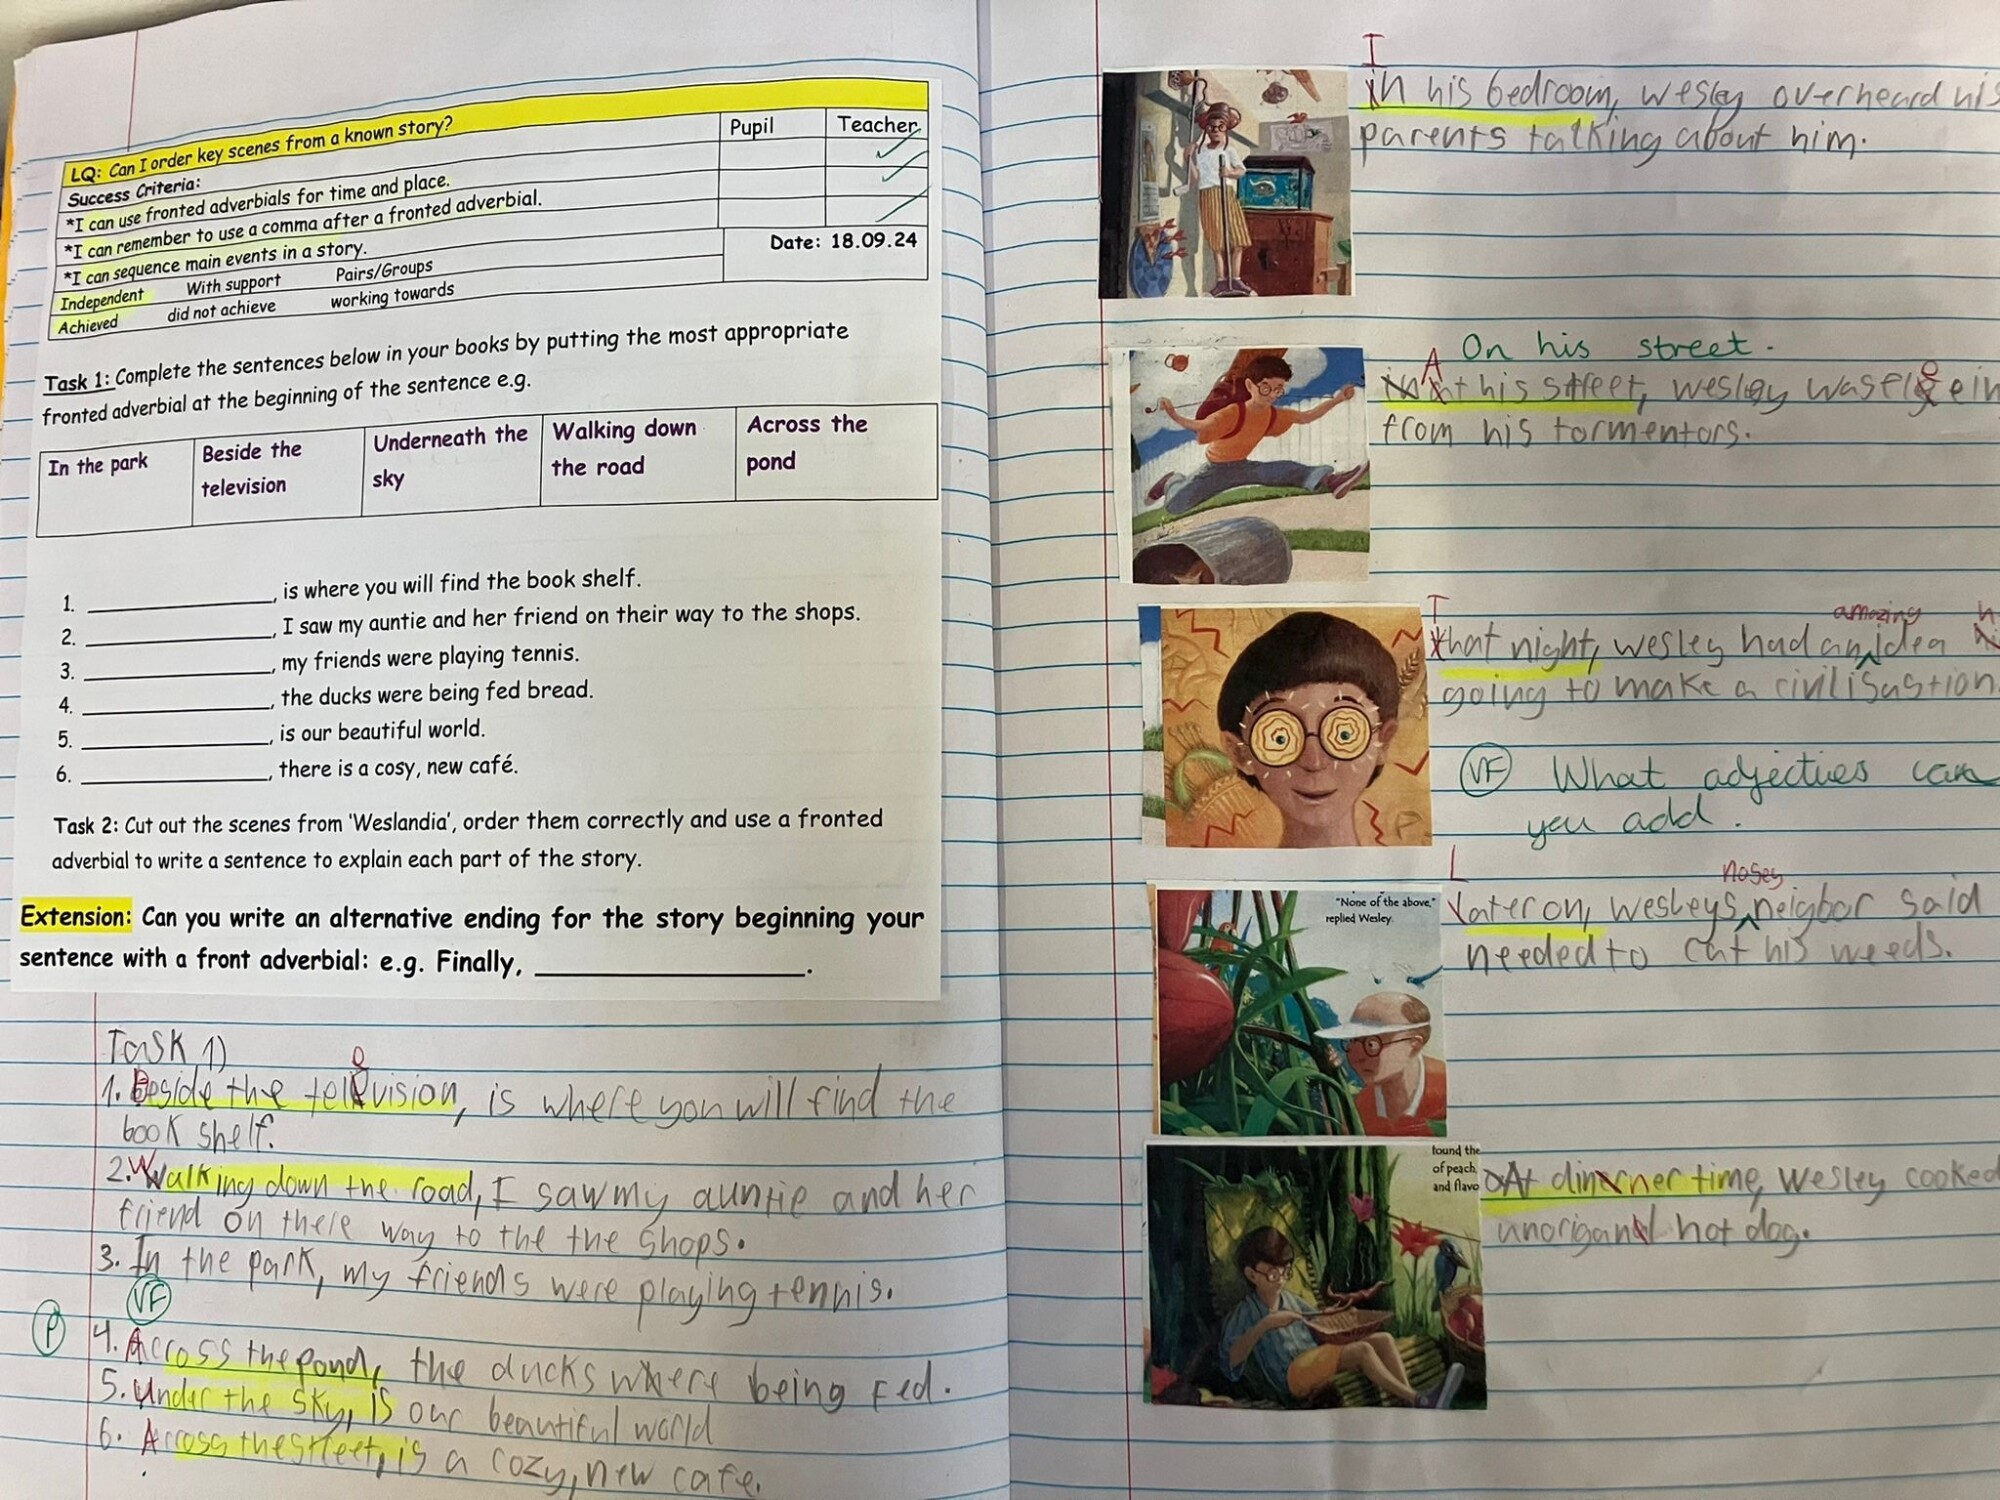 LQ: Can I order key scenes from a known story?
Success Criteria:
Pupil
Teacher
*I can use fronted adverbials for time and place.
*I can remember to use a comma after a fronted adverbial.
*I can sequence main events in a story.
Independent With support Pairs/Groups
Achieved did not achieve working towards
Date: 18.09.24
Task 1: Complete the sentences below in your books by putting the most appropriate
fronted adverbial at the beginning of the sentence e.g.
In the park
Beside the
television
Underneath the
sky
Walking down
the road
Across the
pond
1. ____________, is where you will find the book shelf.
2. ____________, I saw my auntie and her friend on their way to the shops.
3. ____________, my friends were playing tennis.
4. ____________, the ducks were being fed bread.
5. ____________, is our beautiful world.
6. ____________, there is a cosy, new café.
Task 2: Cut out the scenes from 'Weslandia', order them correctly and use a fronted
adverbial to write a sentence to explain each part of the story.
Extension: Can you write an alternative ending for the story beginning your
sentence with a front adverbial: e.g. Finally, ____________.
Task 1)
1. Beside the television, is where you will find the
book shelf.
2. Walking down the road, I saw my auntie and her
friend on there way to the the shops.
3. In the park, my friends were playing tennis.
VF
P
4. Across the pond, the ducks where being fed.
5. Under the sky, is our beautiful world
6. Across the street, is a cozy, new cafe.
I
in his bedroom, wesley overheard his
parents talking about him.
On his street.
At his street, wesley was
from his tormentors.
T
that night, wesley had an amazing idea
going to make a civilisastion.
VF What adjectives can
you add.
"None of the above,"
replied Wesley.
L
Later on, wesleys nosey neigbor said
needed to cut his weeds.
found the
of peach,
and flavo
At dinner time, wesley cooked
unoriganl hot dog.